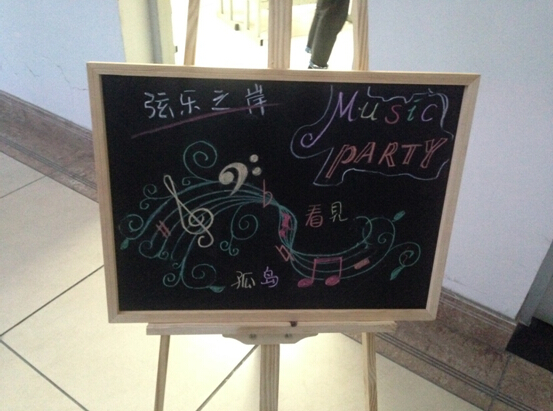 弦乐之岸
Music
PARTY
看见
孤岛